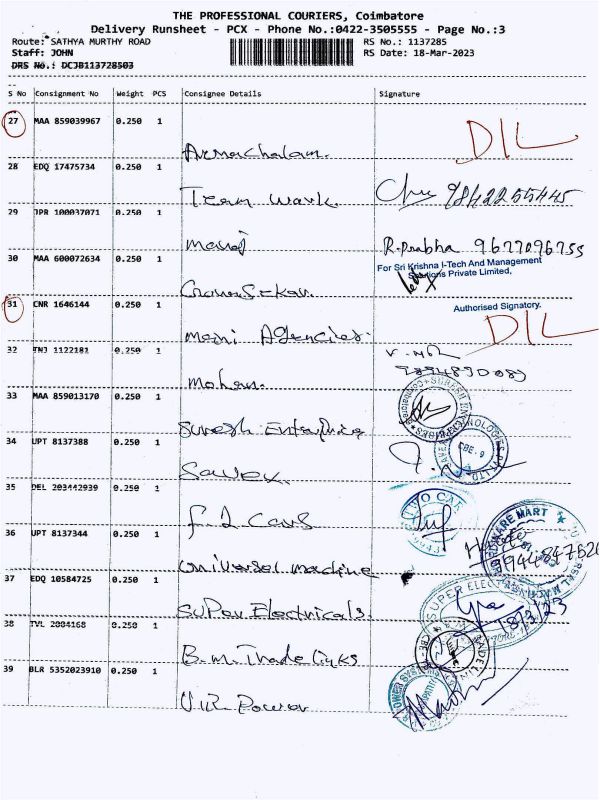 THE PROFESSIONAL COURIERS, Coimbatore
Delivery Runsheet - PCX - Phone No.:0422-3505555 - Page No.:3
Route: SATHYA MURTHY ROAD RS No.: 1137285
Staff: JOHN RS Date: 18-Mar-2023
DRS No.: DCJB113728503
S No Consignment No Weight PCS Consignee Details Signature
27 MAA 859039967 0.250 1
Arunachalam. DIL
28 EDQ 17475734 0.250 1
Team Work. 9842255445
29 JPR 100037071 0.250 1
Manoj R.Prabha 9677096755
30 MAA 600072634 0.250 1
For Sri Krishna I-Tech And Management
Solutions Private Limited,
Authorised Signatory.
31 CNR 1646144 0.250 1
Mani Agencies. DIL
32 TNJ 1122181 0.250 1
Mohan.
33 MAA 859013170 0.250 1
Suresh Enterprise
34 UPT 8137388 0.250 1
Savex.
35 DEL 203442939 0.250 1
Cars
36 UPT 8137344 0.250 1
HARDWARE MART
Universal machine
37 EDQ 10584725 0.250 1
SUPER ELECT
Super Electricals. 18/3/23
38 TVL 2004168 0.250 1
B.M. Trade Links
39 BLR 5352023910 0.250 1
Power